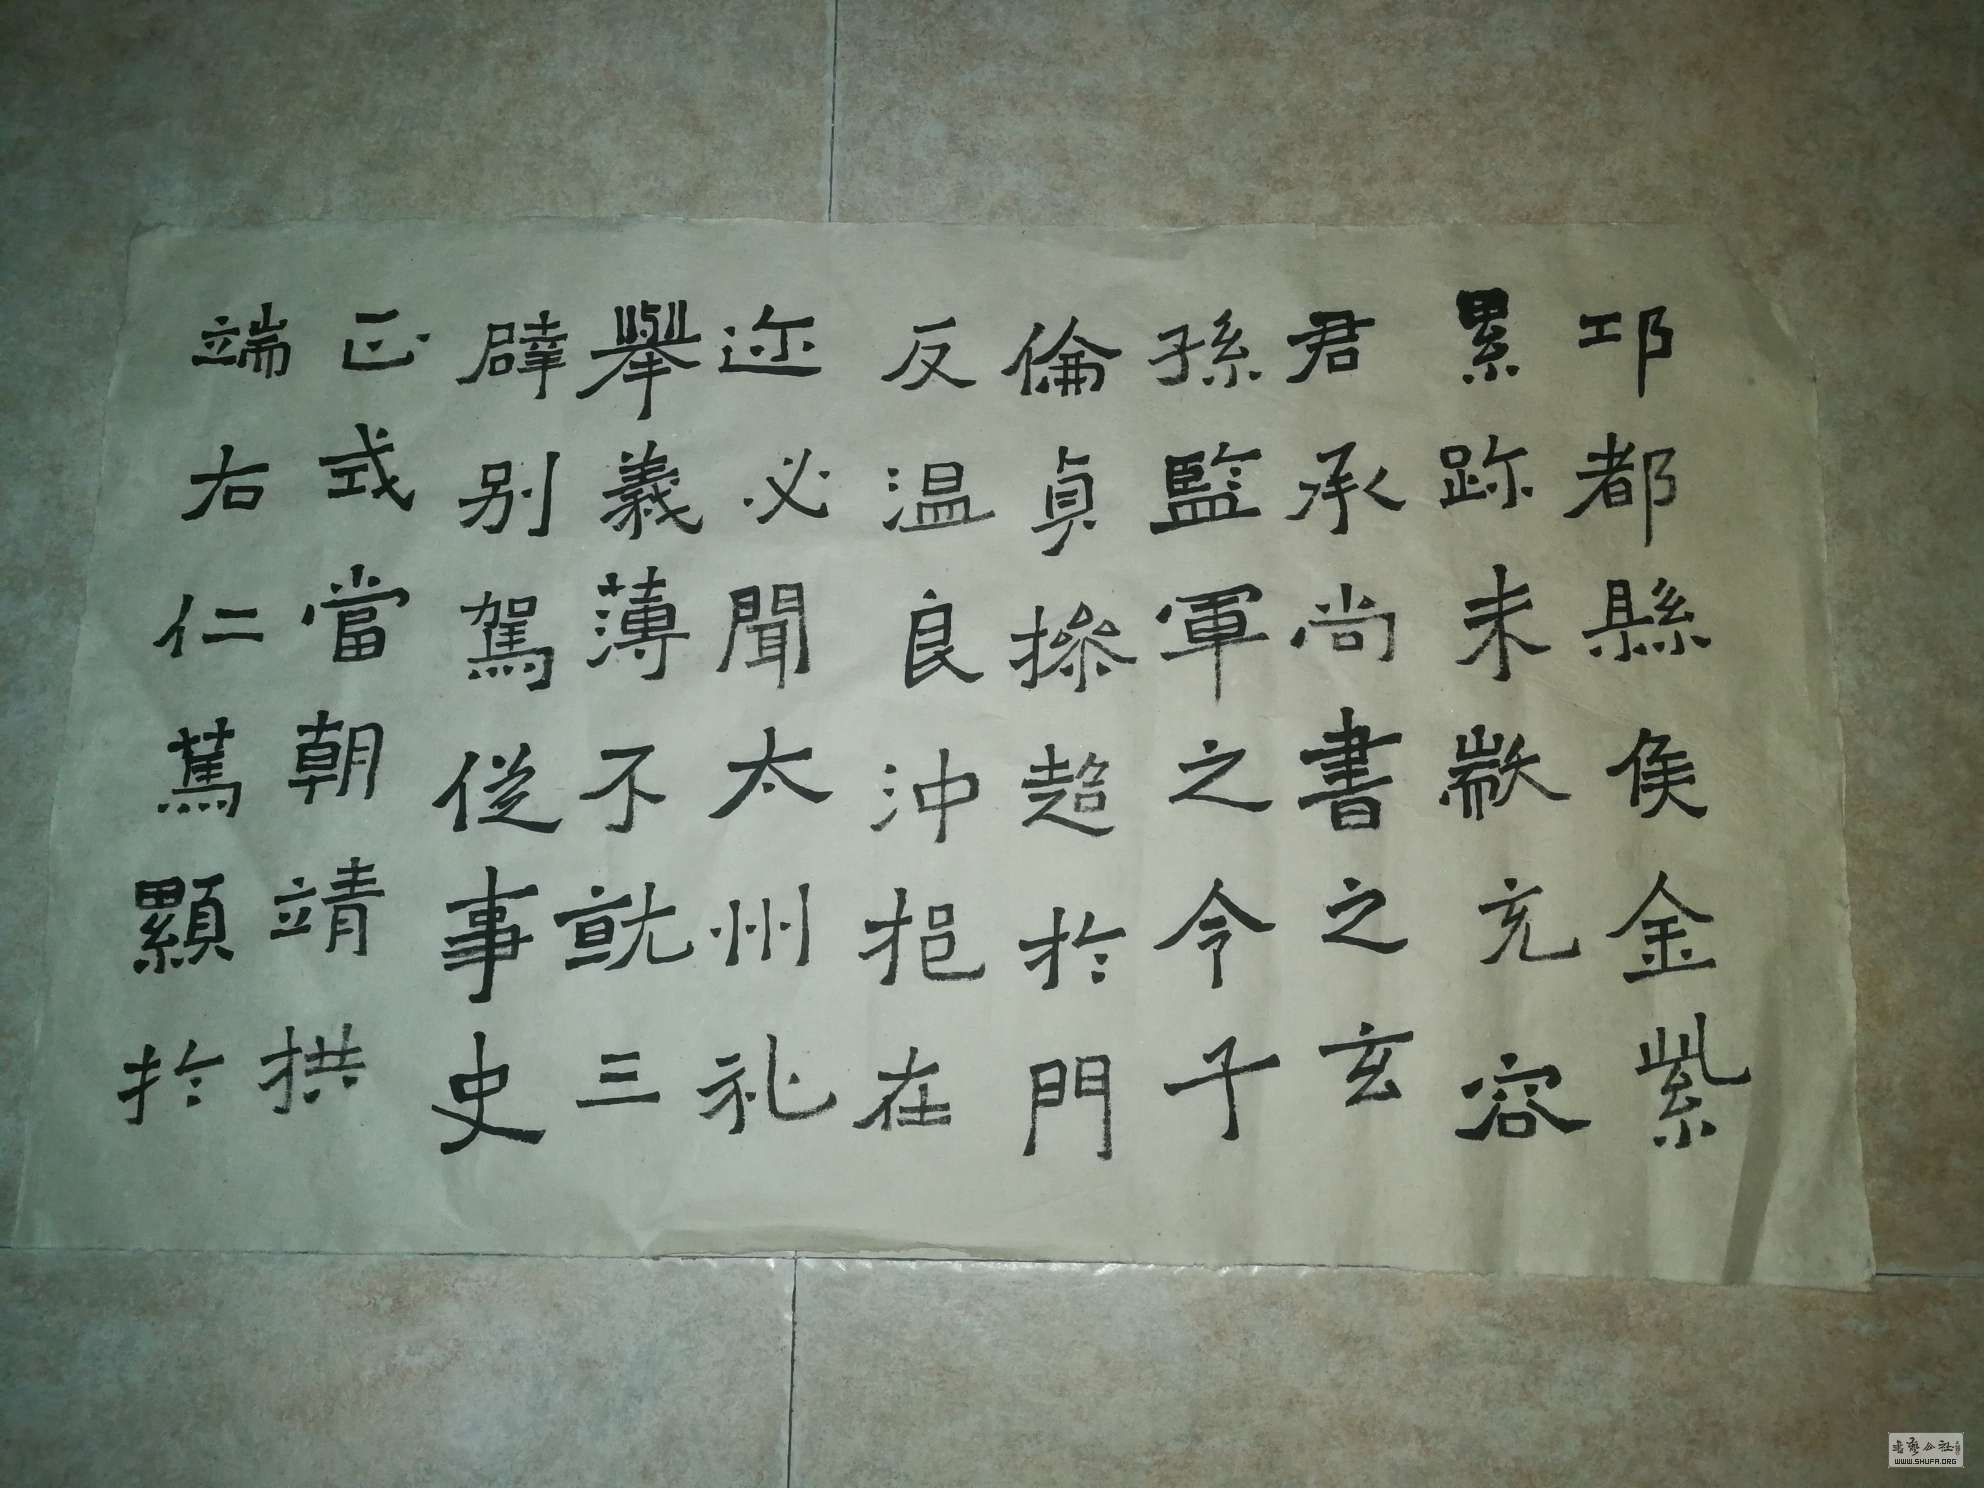 邛都縣侯金紫
累跡未歇充容
君承尚書之玄
孫監軍之令子
倫貞操超於門
友温良沖挹在
迩必聞太州礼
舉義薄不就三
辟別駕從事史
正式當朝靖拱
端右仁篤顯於
WWW.SHUFA.ORG